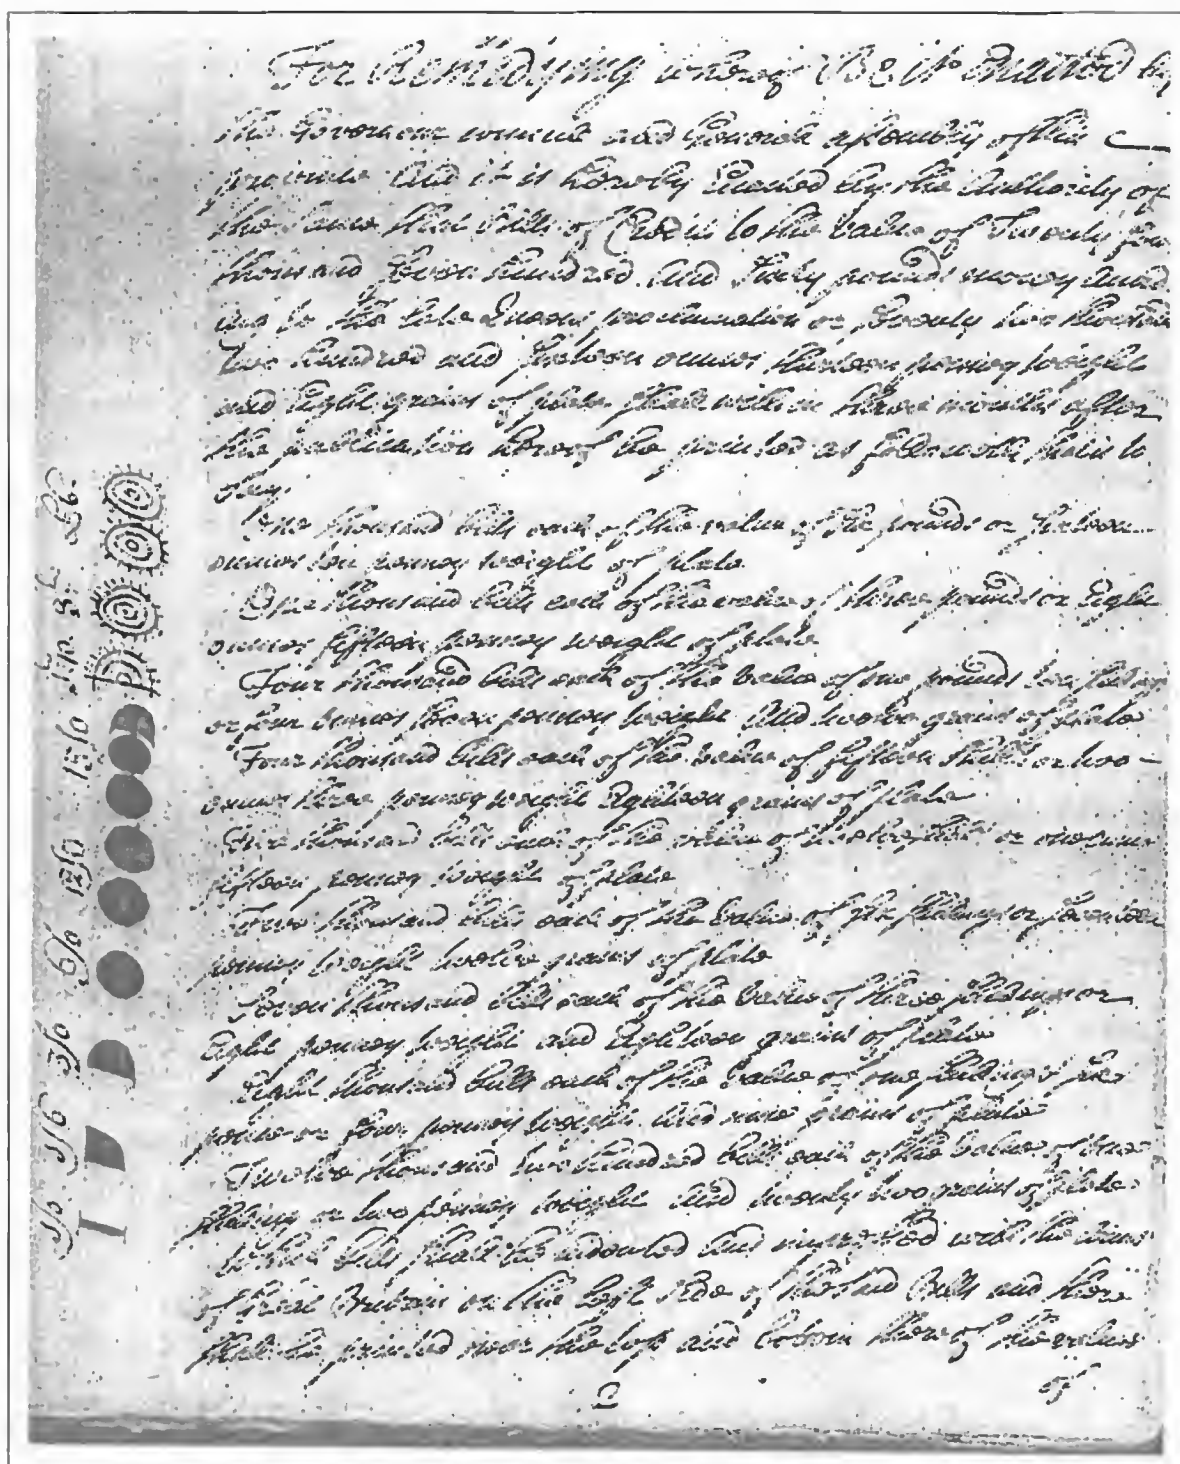 For Remidying wherof Be it Enacted by
the Governour Council and General assembly of this
province And it is hereby Enacted by the Authority of
the same that bills of Credit to the value of Twenty four
thousand Seven hundred And Sixty pounds money Accord
ing to the late Queens proclamation or Seventy two thousand
Two hundred and Sixteen ounces thirteen penney weight
and Eight grains of plate shall within three months after
the publication hereof be printed as followeth that is to
say.
One thousand bills each of the value of Six pounds or
ounces ten penney weight of plate
One thousand bills each of the value of three pounds or Eight
ounces fifteen penney weight of plate
Four thousand bills each of the value of one pounds ten
or four ounces seven penney weight And twelve grains of plate
Four thousand bills each of the value of fifteen Shills or two
ounces three penney weight Eighteen grains of plate
thousand bills each of the value of twelve or one ounce
fifteen penney weight of plate
Two thousand bills each of the value of Six shillings or seventeen
penney weight twelve grains of plate
Seven thousand bills each of the value of three shillings or
Eight penney weight and Eighteen grains of plate
Eight thousand bills each of the value of one shilling & six
pence or four penney weight and nine grains of plate
Twelve thousand two hundred bills each of the value of one
shilling or two penney weight And twenty two grains of plate
which bills shall be indented And impressed with the Arms
of Great Britain on the left side of the said Bills and there
shall be printed near the top and bottom thereof the values
of
2
1/0 1/6 3/0 6/0 12/0 15/0